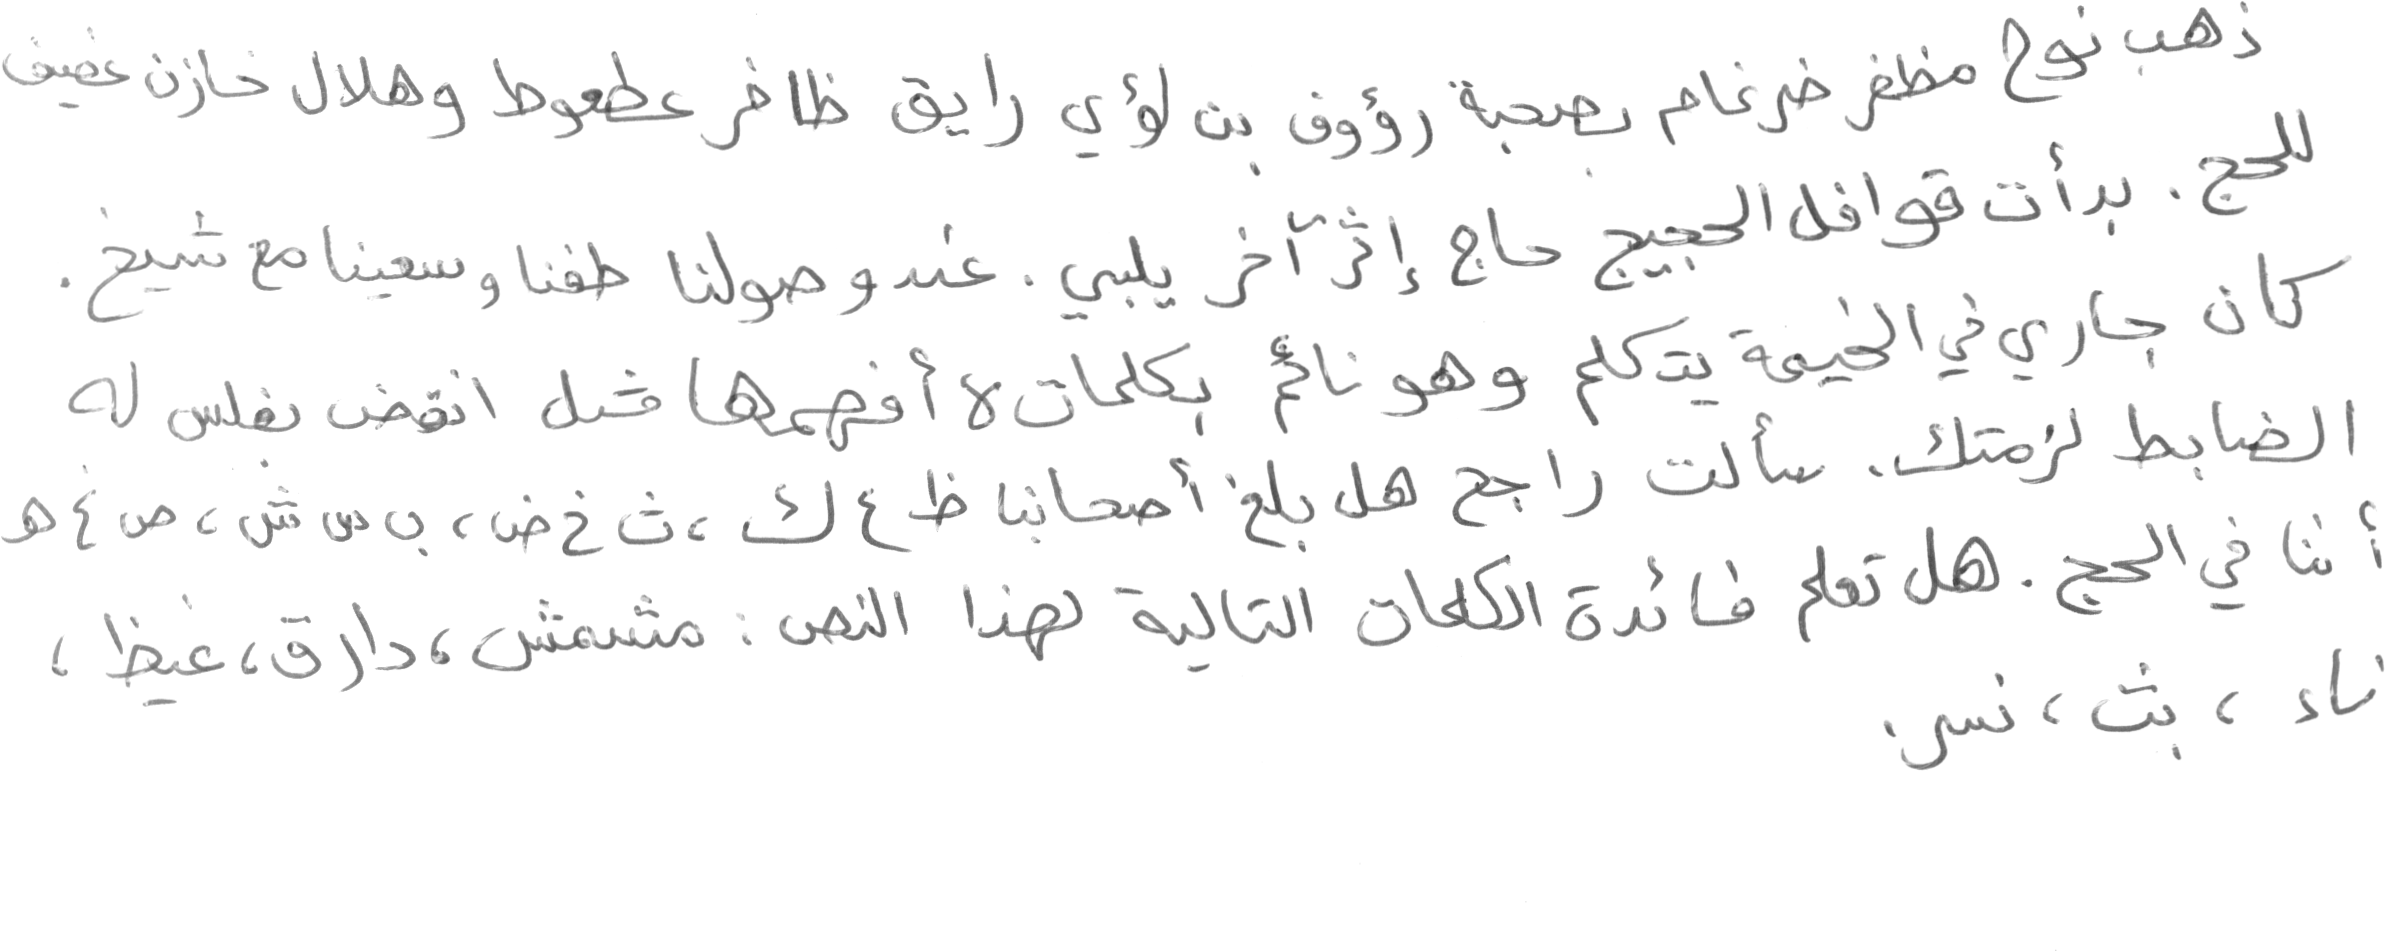 ذهب نوح مظفر ضرغام بصحبة رؤوف بن لؤي رايق ظافر عطعوط وهلال خازن غضيف
للحج. بدأت قوافل الحجيج حاج إثر آخر يلبي. عند وصولنا طفنا وسعينا مع شيخ.
كان جاري في الخيمة يتكلم وهو نائم بكلمات لا أفهمها مثل انقض بفلس له
الضابط لزمتك. سألت راجح هل بلغ أصحابنا ظ ع ك، ث خ ض، ب س ش، ص غ ه
أننا في الحج. هل تعلم فائدة الكلمات التالية لهذا النص: مشمش، دارق، غيظ،
ناء، بث، نسر.